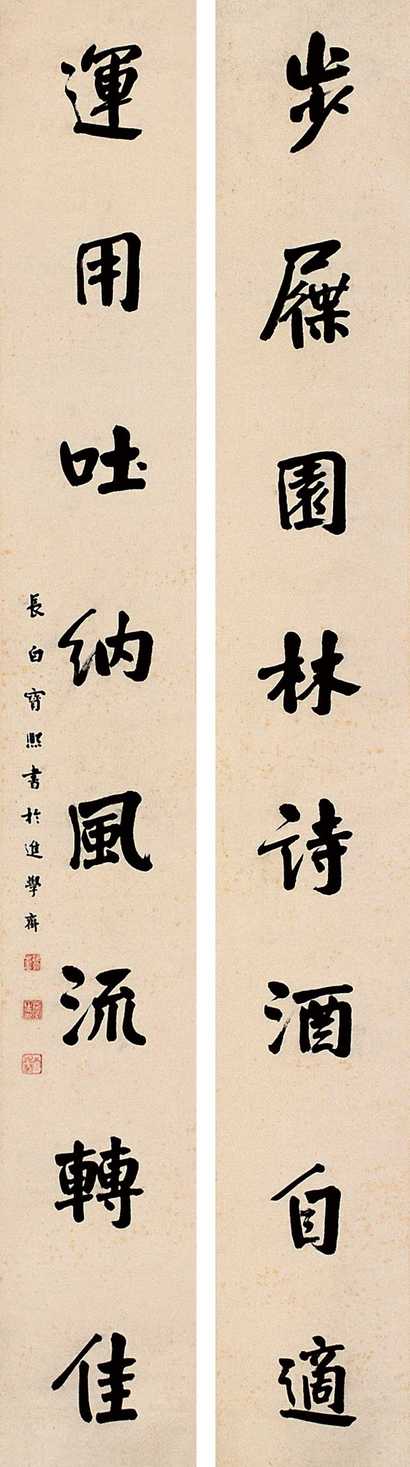 步屧園林詩酒自適
運用吐納風流轉佳
長白寶熙書於進學齋